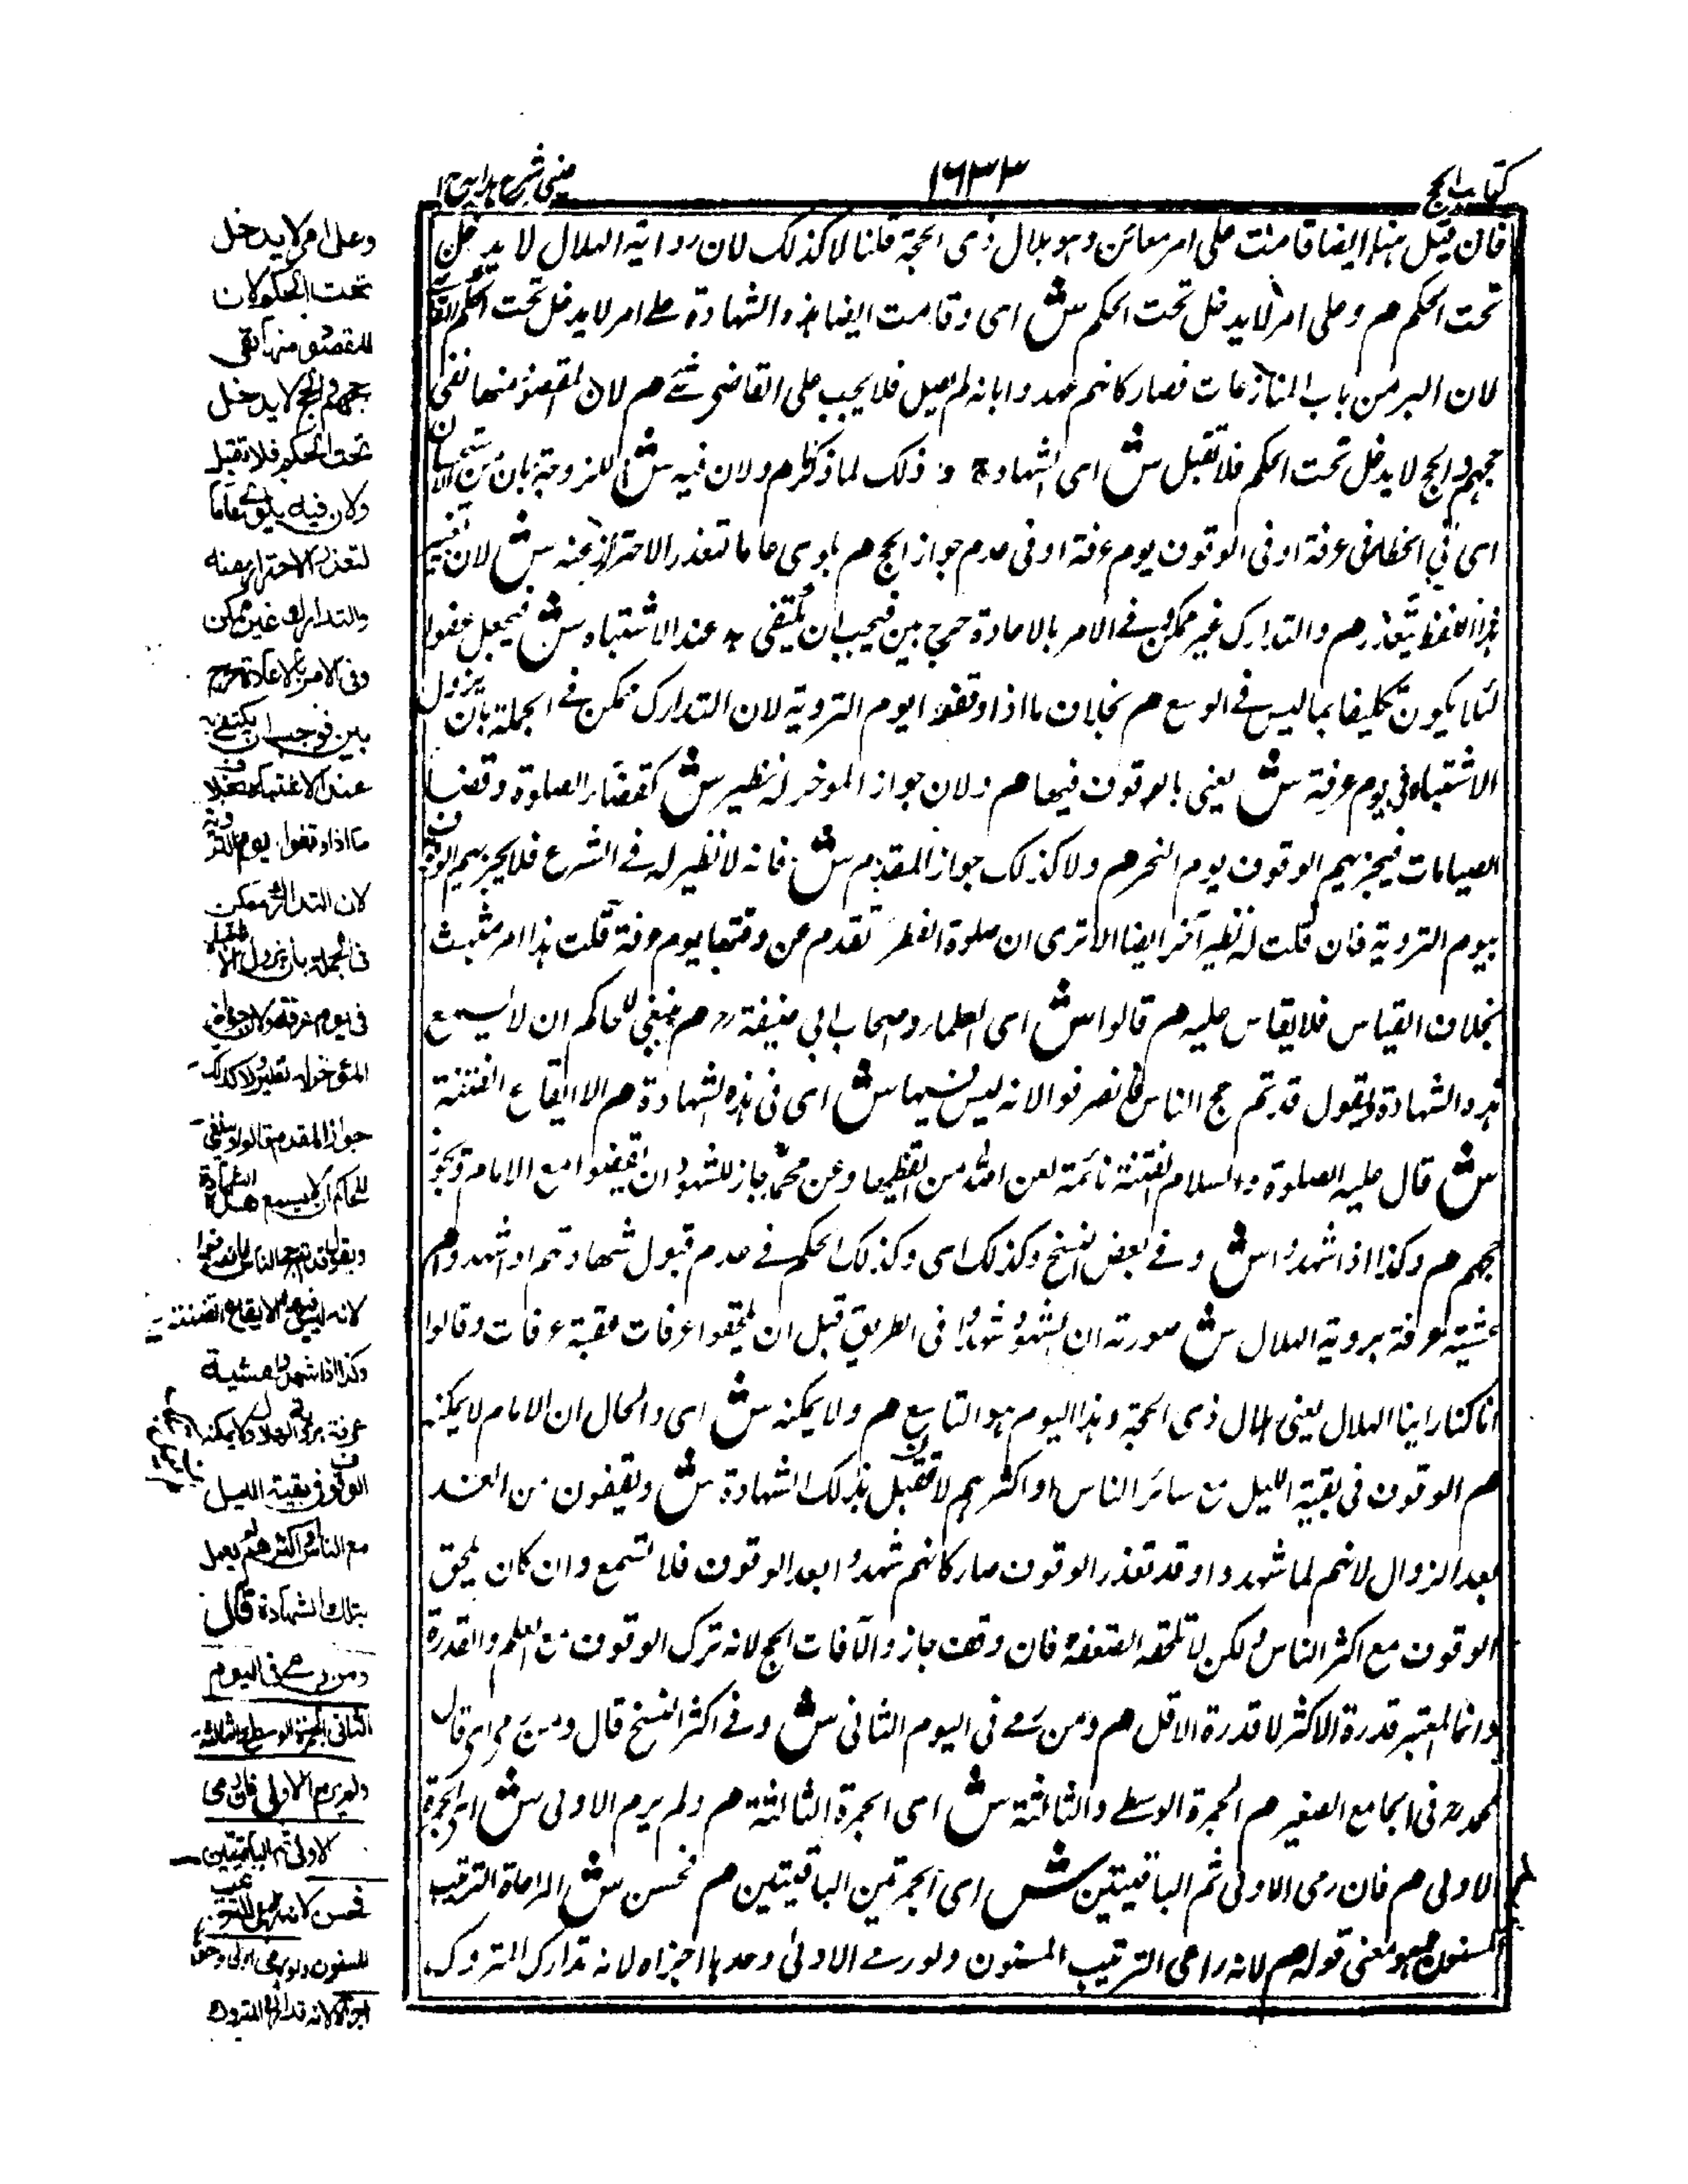 كتاب الحج
١٦٣٣
عینی شرح ہدایہ ج ١
فان قيل هنا ايضا قامت على امر معائن وهو هلال ذى الحجة قلنا لا كذلك لان رواية الهلال لا يدخل
تحت الحكم هم وعلى امر لا يدخل تحت الحكم ش اى وقامت ايضا هذه الشهادة على امر لا يدخل تحت الحكم
لان البر من باب المنازعات فصار كانهم شهدوا بانه لم يصل فلا يجب على القاضى شئ هم لان المقصود منها نفى
حجهم والحج لا يدخل تحت الحكم فلا تقبل ش اى الشهادة وذلك لما ذكر هم ولان فيه ش
اى فى الخطا فى عرفة او فى الوقوف يوم عرفة او فى عدم جواز الحج هم بلوى عاما لتعذر الاحتراز عنه ش لان
هذا اللفظ يتعذر هم والتدارك غير ممكن وفى الامر بالاعادة حرج بين فيجب ان يكتفى به عند الاشتباه ش فيجعل عفوا
لئلا يكون تكليفا بما ليس فى الوسع هم بخلاف ما اذا وقفوا يوم التروية لان التدارك ممكن فى الجملة بان يزول
الاشتباه فى يوم عرفة ش يعنى بالوقوف فيها هم ولان جواز الموخر له نظير ش كقضاء الصلوة وقضا
الصيامات فيجزيهم الوقوف يوم النحر هم ولا كذلك جواز المقدم ش فانه لا نظير له فى الشرع فلا يجزيهم الوقوف
بيوم التروية فان قلت له نظير آخر ايضا الا ترى ان صلوة العصر تقدم عن وقتها يوم عرفة قلت هذا امر مثبت
بخلاف القياس فلا يقاس عليه هم قالوا ش اى العلماء وصحاب ابى حنيفة رح هم ينبغى للحاكم ان لا يسمع
هذه الشهادة ويقول قد تم حج الناس فانصرفوا لانه ليس فيها ش اى فى هذه الشهادة هم الا ايقاع الفتنة
ش قال عليه الصلوة والسلام الفتنة نائمة لعن الله من ايقظها وعن محمد جاز للشهود ان يقفوا مع الامام ويجوز
حجهم هم وكذا اذا شهدوا ش وفى بعض النسخ وكذلك اى وكذلك الحكم فى عدم قبول شهادتهم اذ شهدوا هم
عشية عرفة بروية الهلال ش صورته ان الشهود شهدوا فى الطريق قبل ان يلحقوا عرفات عشية عرفات وقالوا
انا كنا راينا الهلال يعنى هلال ذى الحجة وهذا اليوم هو التاسع هم ولا يمكنه ش اى والحال ان الامام لا يمكنه
هم الوقوف فى بقية الليل مع سائر الناس او اكثرهم لا تقبل بذلك الشهادة ش ويقفون من الغد
بعد الزوال لانهم لما شهدوا وقد تعذر الوقوف صار كانهم شهدوا بعد الوقوف فلا تسمع وان كان يلحق
الوقوف مع اكثر الناس ولكن لا تلحقه الضعفة فان وقف جاز والا فات الحج لانه ترك الوقوف مع العلم والقدرة
وانما المعتبر قدرة الاكثر لا قدرة الاقل هم ومن رمى فى اليوم الثانى ش وفى اكثر النسخ قال ومن رمى اى قال
محمد رح فى الجامع الصغير هم الجمرة الوسطى والثالثة ش اى الجمرة الثالثة هم ولم يرم الاولى ش اى الجمرة
الاولى هم فان رمى الاولى ثم الباقيتين ش اى الجمرتين الباقيتين هم فحسن ش لمراعاة الترتيب
المسنون وهو معنى قوله هم لانه راعى الترتيب المسنون ولو رمى الاولى وحدها اجزاه لانه تدارك المتروك
وعلى امر لا يدخل
تحت الحكم لان
المقصود منها نفى
حجهم والحج لا يدخل
تحت الحكم فلا تقبل
ولان فيه بلوى عاما
لتعذر الاحتراز عنه
والتدارك غير ممكن
وفى الامر بالاعادة حرج
بين فوجب ان يكتفى به
عند الاشتباه بخلاف
ما اذا وقفوا يوم التروية
لان التدارك ممكن
فى الجملة بان يزول الاشتباه
فى يوم عرفة ولان جواز
المؤخر له نظير ولا كذلك
جواز المقدم قالوا وينبغى
للحاكم ان لا يسمع هذه الشهادة
ويقول قد تم حج الناس فانصرفوا
لانه ليس فيها الا ايقاع الفتنة
وكذا اذا شهدوا عشية
عرفة برؤية الهلال ولا يمكنه
الوقوف فى بقية الليل
مع الناس او اكثرهم لم يعمل
بتلك الشهادة قال
ومن رمى فى اليوم
الثانى الجمرة الوسطى والثالثة
ولم يرم الاولى فان رمى
الاولى ثم الباقيتين
فحسن لانه راعى الترتيب
المسنون ولو رمى الاولى وحدها
اجزاه لانه تدارك المتروك